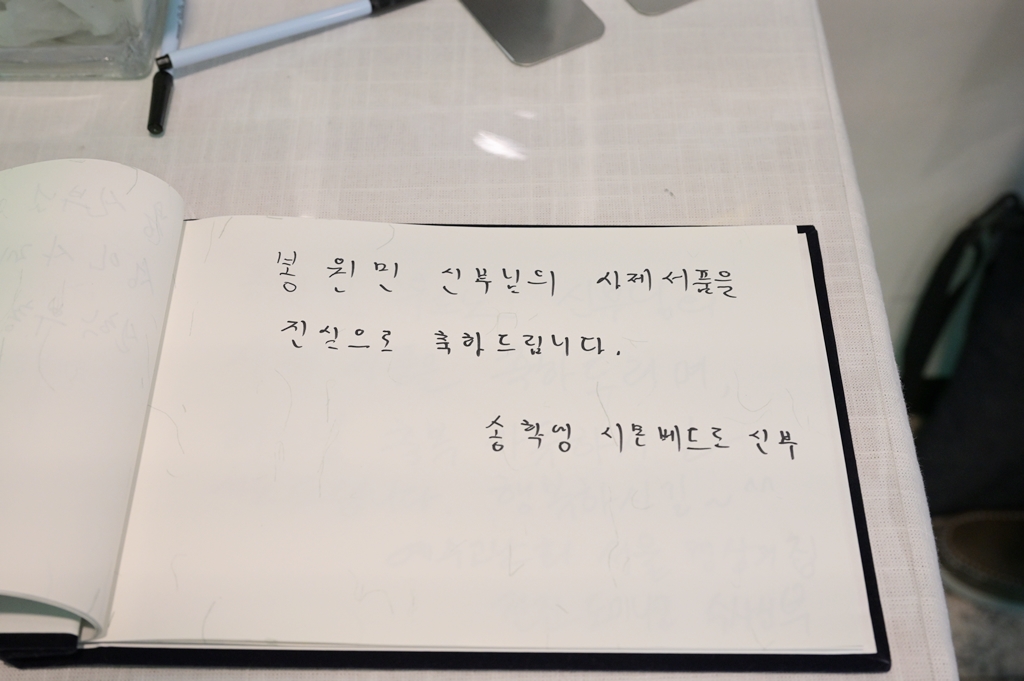 봉원민 신부님의 사제서품을
진심으로 축하드립니다.
시몬베드로 신부